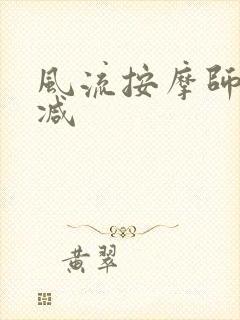 風流按摩師
减
黃翠